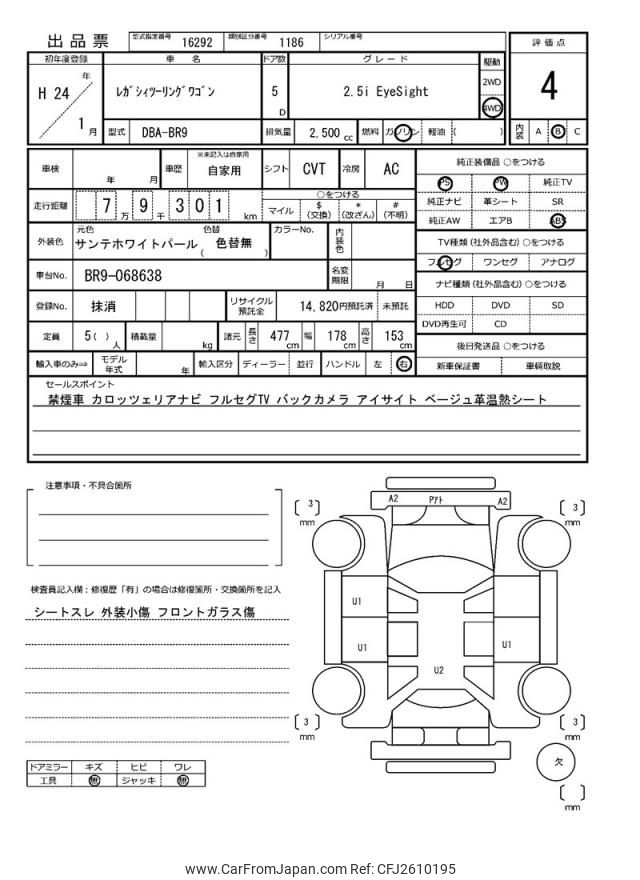 出品票 型式指定番号 16292 類別区分番号 1186 シリアル番号
評価点
4
内装 A B C
初年度登録 車名 ドア数 グレード 駆動
H 24 年 1 月
ﾚｶﾞｼｨﾂｰﾘﾝｸﾞﾜｺﾞﾝ
5 D
2.5i EyeSight
2WD
4WD
型式 DBA-BR9 排気量 2,500 cc 燃料 ガソリン 軽油 ( )
車検 年 月 車歴 ※未記入は自家用 自家用 シフト CVT 冷房 AC
走行距離 7 万 9 千 3 0 1 km
○をつける
マイル $ (交換) * (改ざん) # (不明)
外装色 元色 サンテホワイトパール 色替 ( 色替無 ) カラーNo. 内装色
車台No. BR9-068638 名変期限 月 日
登録No. 抹消 リサイクル預託金 14,820円預託済 未預託
定員 5 ( ) 人 積載量 kg 諸元 長さ 477 cm 幅 178 cm 高さ 153 cm
輸入車のみ⇒ モデル年式 年 輸入区分 ディーラー 並行 ハンドル 左 右
純正装備品 ○をつける
PS PW 純正TV
純正ナビ 革シート SR
純正AW エアB ABS
TV種類 (社外品含む) ○をつける
フルセグ ワンセグ アナログ
ナビ種類 (社外品含む) ○をつける
HDD DVD SD
DVD再生可 CD
後日発送品 ○をつける
新車保証書 車輌取説
セールスポイント
禁煙車 カロッツェリアナビ フルセグTV バックカメラ アイサイト ベージュ革温熱シート
注意事項・不具合箇所
検査員記入欄：修復歴「有」の場合は修復箇所・交換箇所を記入
シートスレ 外装小傷 フロントガラス傷
ドアミラー キズ ヒビ ワレ
工具 無 ジャッキ 無
A2 Pｱﾄ A2
3 mm
3 mm
U1
U1
U1
U2
3 mm
3 mm
A2 A2
欠
mm
www.CarFromJapan.com Ref: CFJ2610195